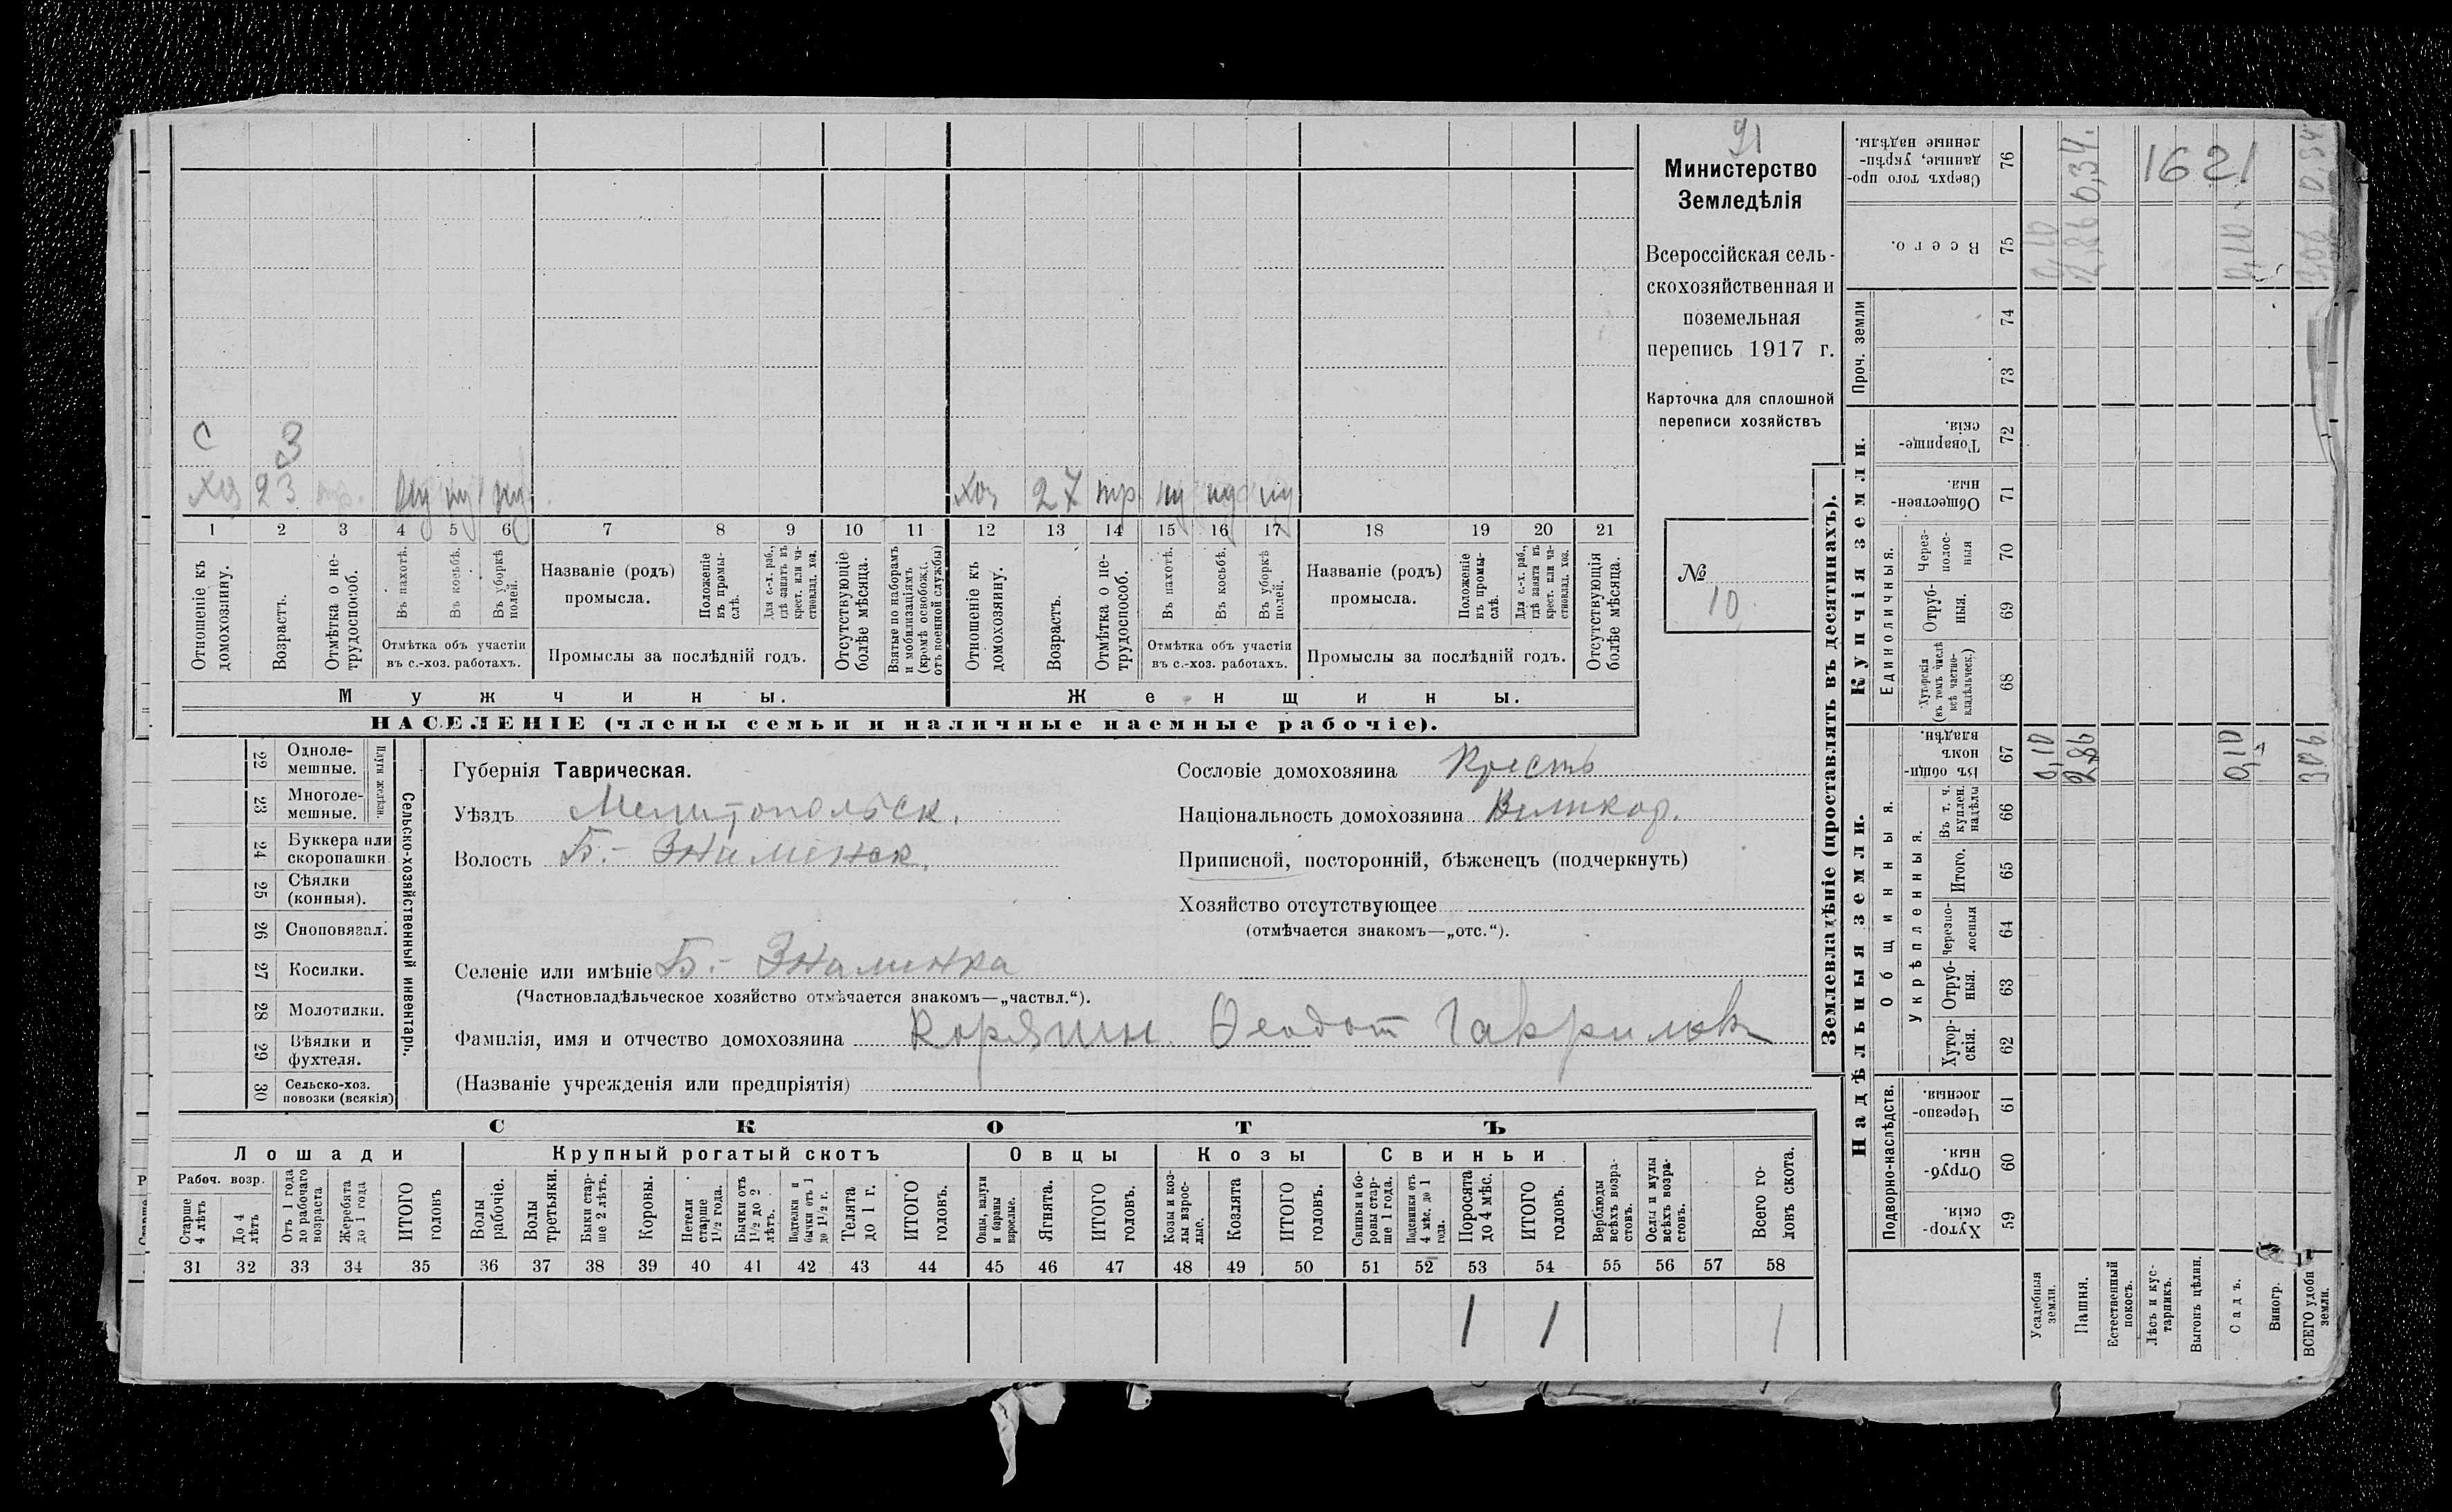 91
Министерство
Земледѣлія
Всероссійская сель-
скохозяйственная и
поземельная
перепись 1917 г.
Карточка для сплошной
переписи хозяйствъ
№
10
С 3
Хоз 23
хоз 27 тр.
1 2 3 4 5 6 7 8 9 10 11 12 13 14 15 16 17 18 19 20 21
Отношеніе къ домохозяину.
Возрастъ.
Отмѣтка о не-трудоспособ.
Въ пахотѣ.
Въ косьбѣ.
Въ уборкѣ полей.
Отмѣтка объ участіи
въ с.-хоз. работахъ.
Названіе (родъ)
промысла.
Положеніе въ промы-слѣ.
Для с.-х. раб., гдѣ занятъ въ крест. или ча-ствовлад. хоз.
Промыслы за послѣдній годъ.
Отсутствующіе болѣе мѣсяца.
Взятые по наборамъ и мобилизаціямъ (кромѣ освобожд. отъ военной службы)
Отношеніе къ домохозяину.
Возрастъ.
Отмѣтка о не-трудоспособ.
Въ пахотѣ.
Въ косьбѣ.
Въ уборкѣ полей.
Отмѣтка объ участіи
въ с.-хоз. работахъ.
Названіе (родъ)
промысла.
Положеніе въ промы-слѣ.
Для с.-х. раб., гдѣ занята въ крест. или ча-ствовлад. хоз.
Промыслы за послѣдній годъ.
Отсутствующія болѣе мѣсяца.
Мужчины.
Женщины.
НАСЕЛЕНІЕ (члены семьи и наличные наемные рабочіе).
22 Одноле-мешные.
23 Многоле-мешные.
Плуги желѣзн.
24 Буккера или скоропашки
25 Сѣялки (конныя).
26 Сноповязал.
27 Косилки.
28 Молотилки.
29 Вѣялки и фухтеля.
30 Сельско-хоз. повозки (всякія)
Сельско-хозяйственный инвентарь.
Губернія Таврическая.
Уѣздъ Мелитопольск.
Волость Б.-Знаменск.
Селеніе или имѣніе Б.-Знаменка
(Частновладѣльческое хозяйство отмѣчается знакомъ—„частвл.“).
Фамилія, имя и отчество домохозяина Корягин Ѳеодот Гаврилов
(Названіе учрежденія или предпріятія)
Сословіе домохозяина Крест
Національность домохозяина Великор.
Приписной, посторонній, бѣженецъ (подчеркнуть)
Хозяйство отсутствующее
(отмѣчается знакомъ—„отс.“).
СКОТЪ
Лошади
Крупный рогатый скотъ
Овцы
Козы
Свиньи
Рабоч. возр.
Старше 4 лѣтъ
До 4 лѣтъ
Отъ 1 года до рабочаго возраста
Жеребята до 1 года
ИТОГО головъ
Волы рабочіе.
Волы третьяки.
Быки стар-ше 2 лѣтъ.
Коровы.
Нетели старше 1½ года.
Бычки отъ 1½ до 2 лѣтъ.
Подтелки и бычки отъ 1 до 1½ г.
Телята до 1 г.
ИТОГО головъ.
Овцы, валухи и бараны взрослые.
Ягнята.
ИТОГО головъ.
Козы и коз-лы взрос-лые.
Козлята
ИТОГО головъ.
Свиньи и бо-ровы стар-ше 1 года.
Подсвинки отъ 4 мѣс. до 1 года.
Поросята до 4 мѣс.
ИТОГО головъ.
Верблюды всѣхъ возра-стовъ.
Ослы и мулы всѣхъ возра-стовъ.
Всего го-ловъ скота.
31 32 33 34 35 36 37 38 39 40 41 42 43 44 45 46 47 48 49 50 51 52 53 54 55 56 57 58
1 1 1
Землевладѣніе (проставлять въ десятинахъ).
Надѣльныя земли.
Купчія земли.
Проч. земли
Подворно-наслѣдств.
Общинныя.
Укрѣпленныя.
Единоличныя.
Сверхъ того про-данные, укрѣп-ленные надѣлы. 76
Всего. 75
74
73
Товарище-скія. 72
Обществен-ныя. 71
Через-полос-ныя 70
Отруб-ныя. 69
Хуторскія (въ томъ числѣ всѣ частно-владѣльческ.) 68
Въ общин-номъ владѣн. 67
Въ т. ч. куплен. надѣлы 66
Итого. 65
Черезпо-лосныя 64
Отруб-ныя. 63
Хутор-скія. 62
Черезпо-лосныя. 61
Отруб-ныя. 60
Хутор-скія. 59
Усадебныя земли. 0,10 0,10
Пашня. 2,86 2,86 0,34.
Естественный покосъ.
Лѣсъ и кус-тарникъ.
Выгонъ цѣлин.
Садъ. 0,10 0,10
Виногр.
ВСЕГО удобн земли. 3,06. 3,06 0,34
1621